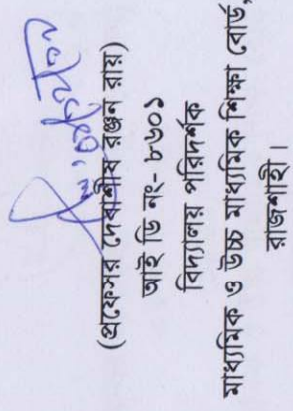 (প্রফেসর দেবাশীষ রঞ্জন রায়)
আই ডি নং- ৮৬০১
বিদ্যালয় পরিদর্শক
মাধ্যমিক ও উচ্চ মাধ্যমিক শিক্ষা বোর্ড,
রাজশাহী।